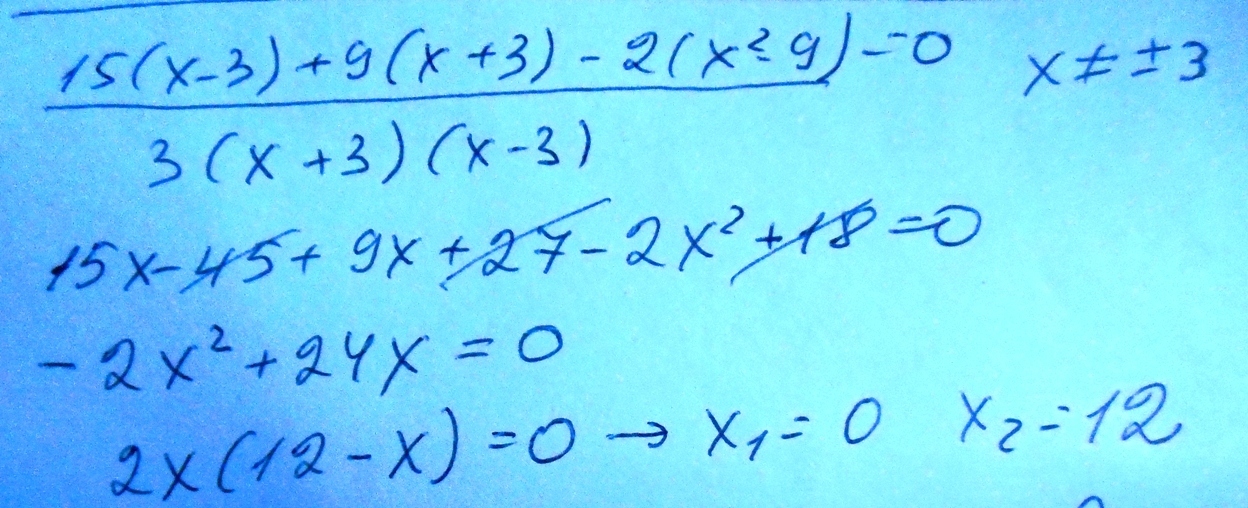 15(x-3)+9(x+3)-2(x²-9)=0 x≠±3
3(x+3)(x-3)
15x-45+9x+27-2x²+18=0
-2x²+24x=0
2x(12-x)=0→x₁=0 x₂=12